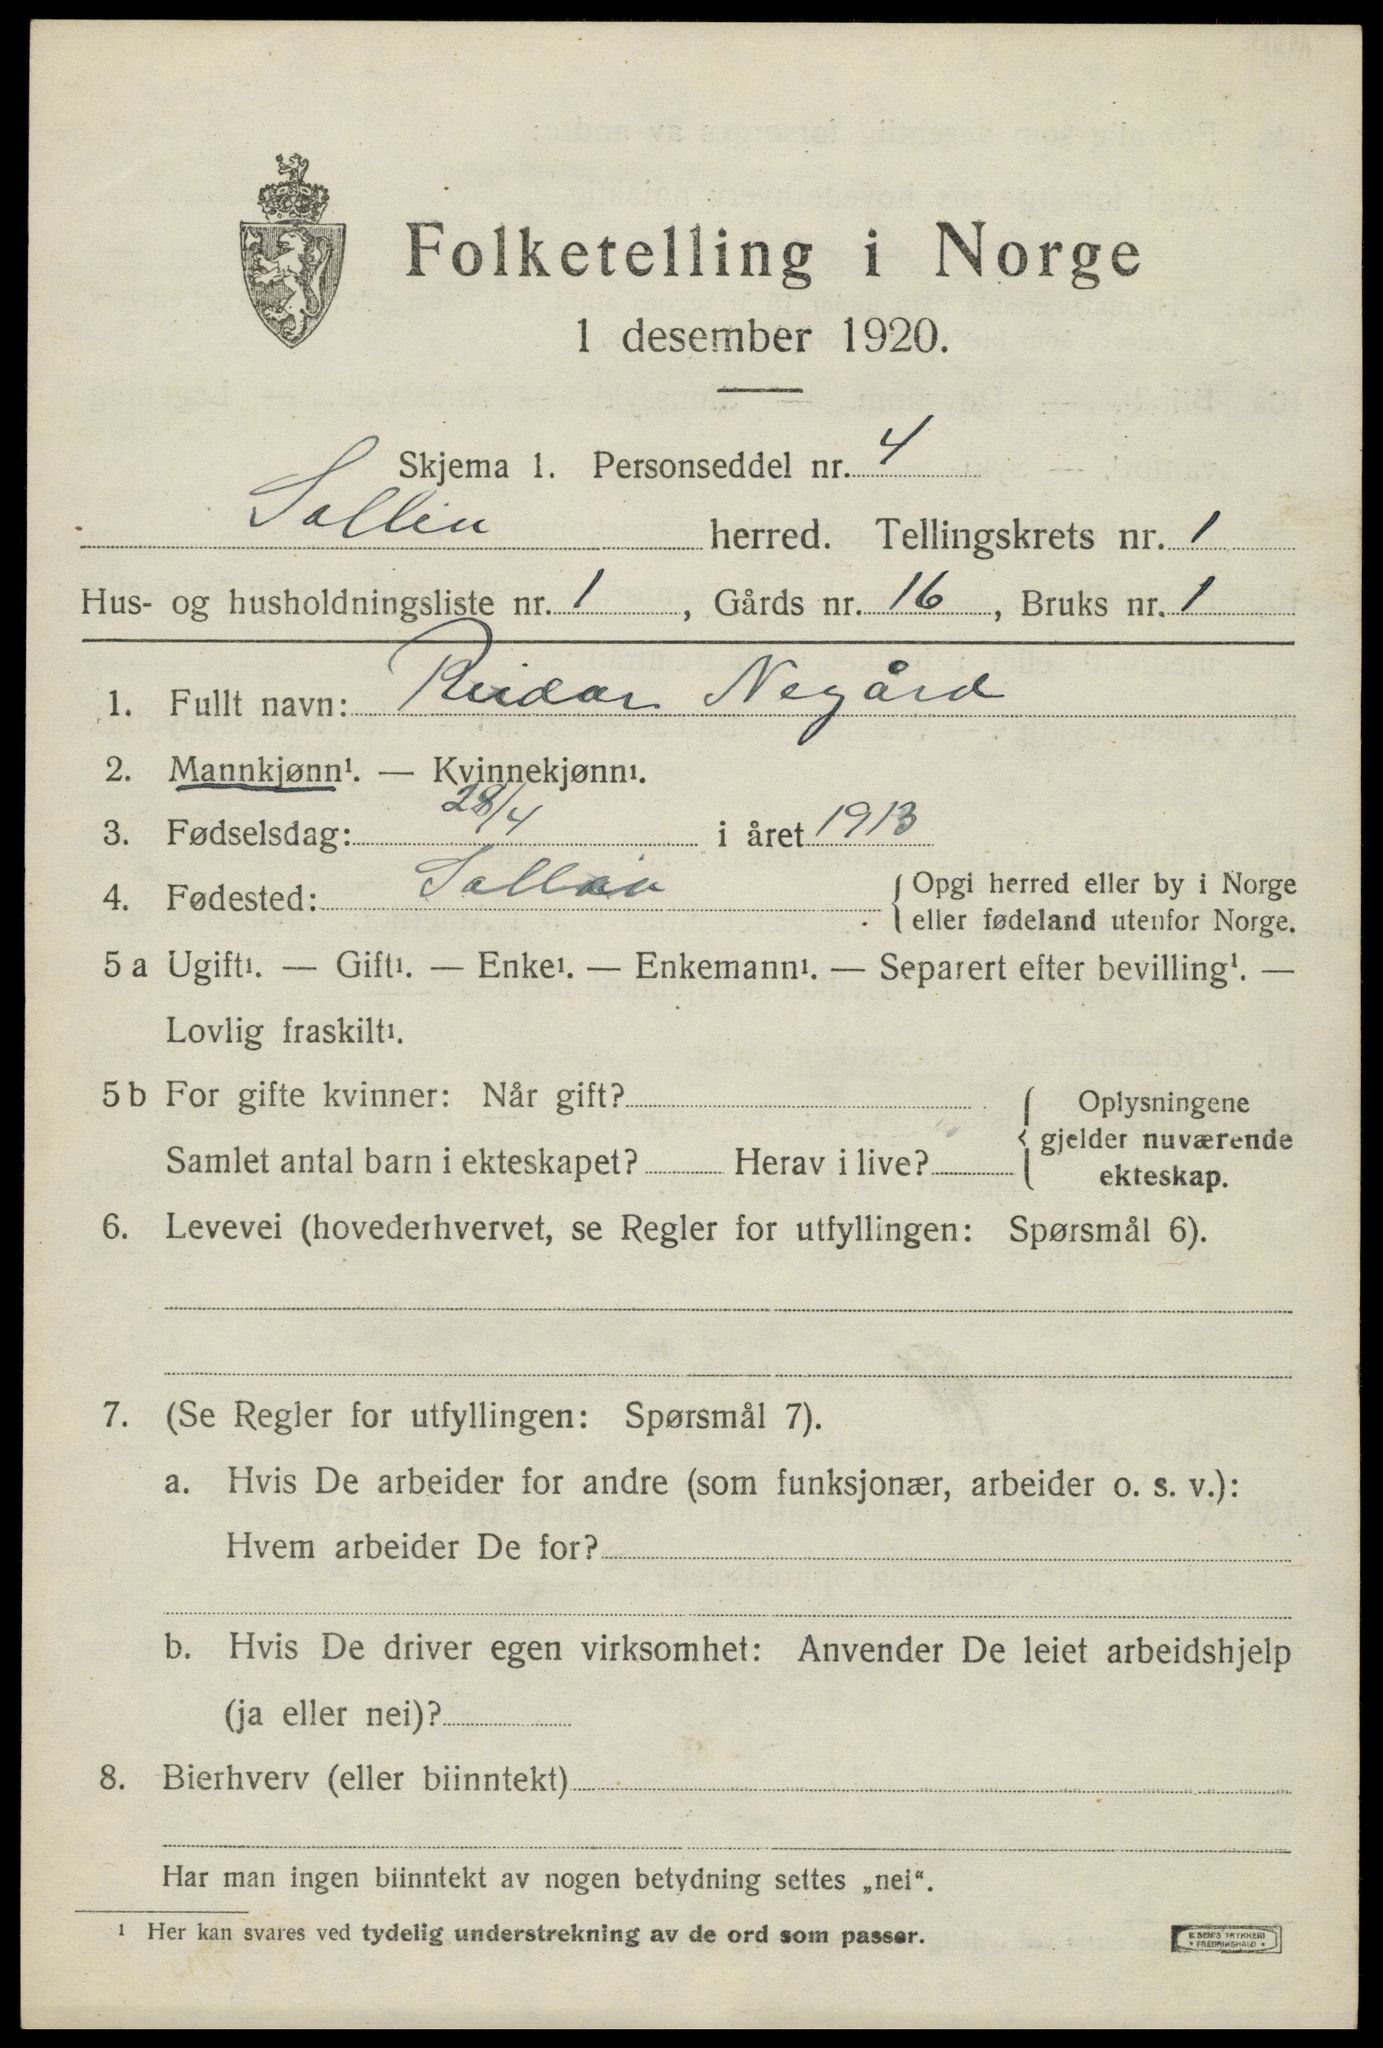 Folketelling i Norge
1 desember 1920.
Skjema 1. Personseddel nr. 4
Sollia herred. Tellingskrets nr. 1
Hus- og husholdningsliste nr. 1, Gårds nr. 16, Bruks nr. 1
1. Fullt navn: Reidar Negård
2. Mannkjønn¹. — Kvinnekjønn¹.
3. Fødselsdag: 28/4 i året 1913
4. Fødested: Sollia { Opgi herred eller by i Norge
eller fødeland utenfor Norge.
5 a Ugift¹. — Gift¹. — Enke¹. — Enkemann¹. — Separert efter bevilling¹. —
Lovlig fraskilt¹.
5 b For gifte kvinner: Når gift? { Oplysningene
gjelder nuværende
Samlet antal barn i ekteskapet? Herav i live? ekteskap.
6. Levevei (hovederhvervet, se Regler for utfyllingen: Spørsmål 6).
7. (Se Regler for utfyllingen: Spørsmål 7).
a. Hvis De arbeider for andre (som funksjonær, arbeider o. s. v.):
Hvem arbeider De for?
b. Hvis De driver egen virksomhet: Anvender De leiet arbeidshjelp
(ja eller nei)?
8. Bierhverv (eller biinntekt)
Har man ingen biinntekt av nogen betydning settes „nei“.
¹ Her kan svares ved tydelig understrekning av de ord som passer.
E SEM'S TRYKKERI
• FREDRIKSHALD •